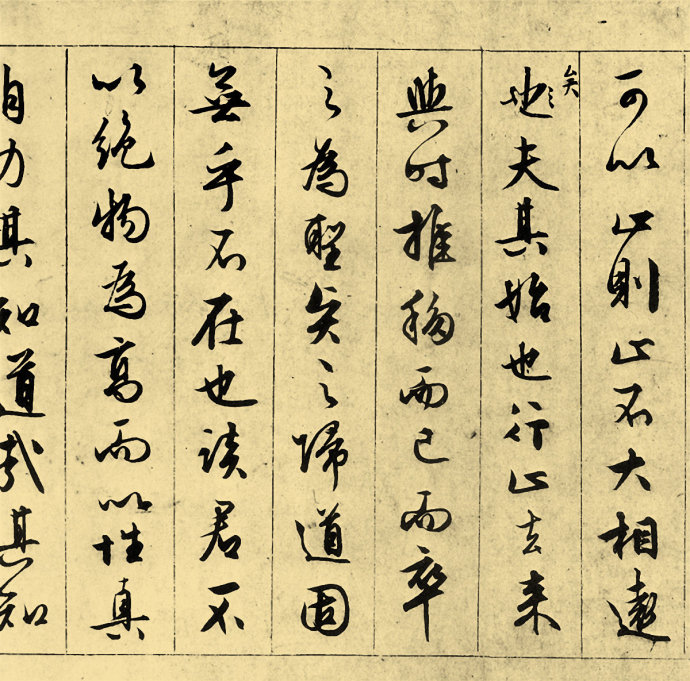 可以止則止不大相遠
也矣夫其始也行止去来
與时推移而已而卒
之為聖矣之歸道固
無乎不在也談君不
以絶物為高而以性真
自力其知道哉其知